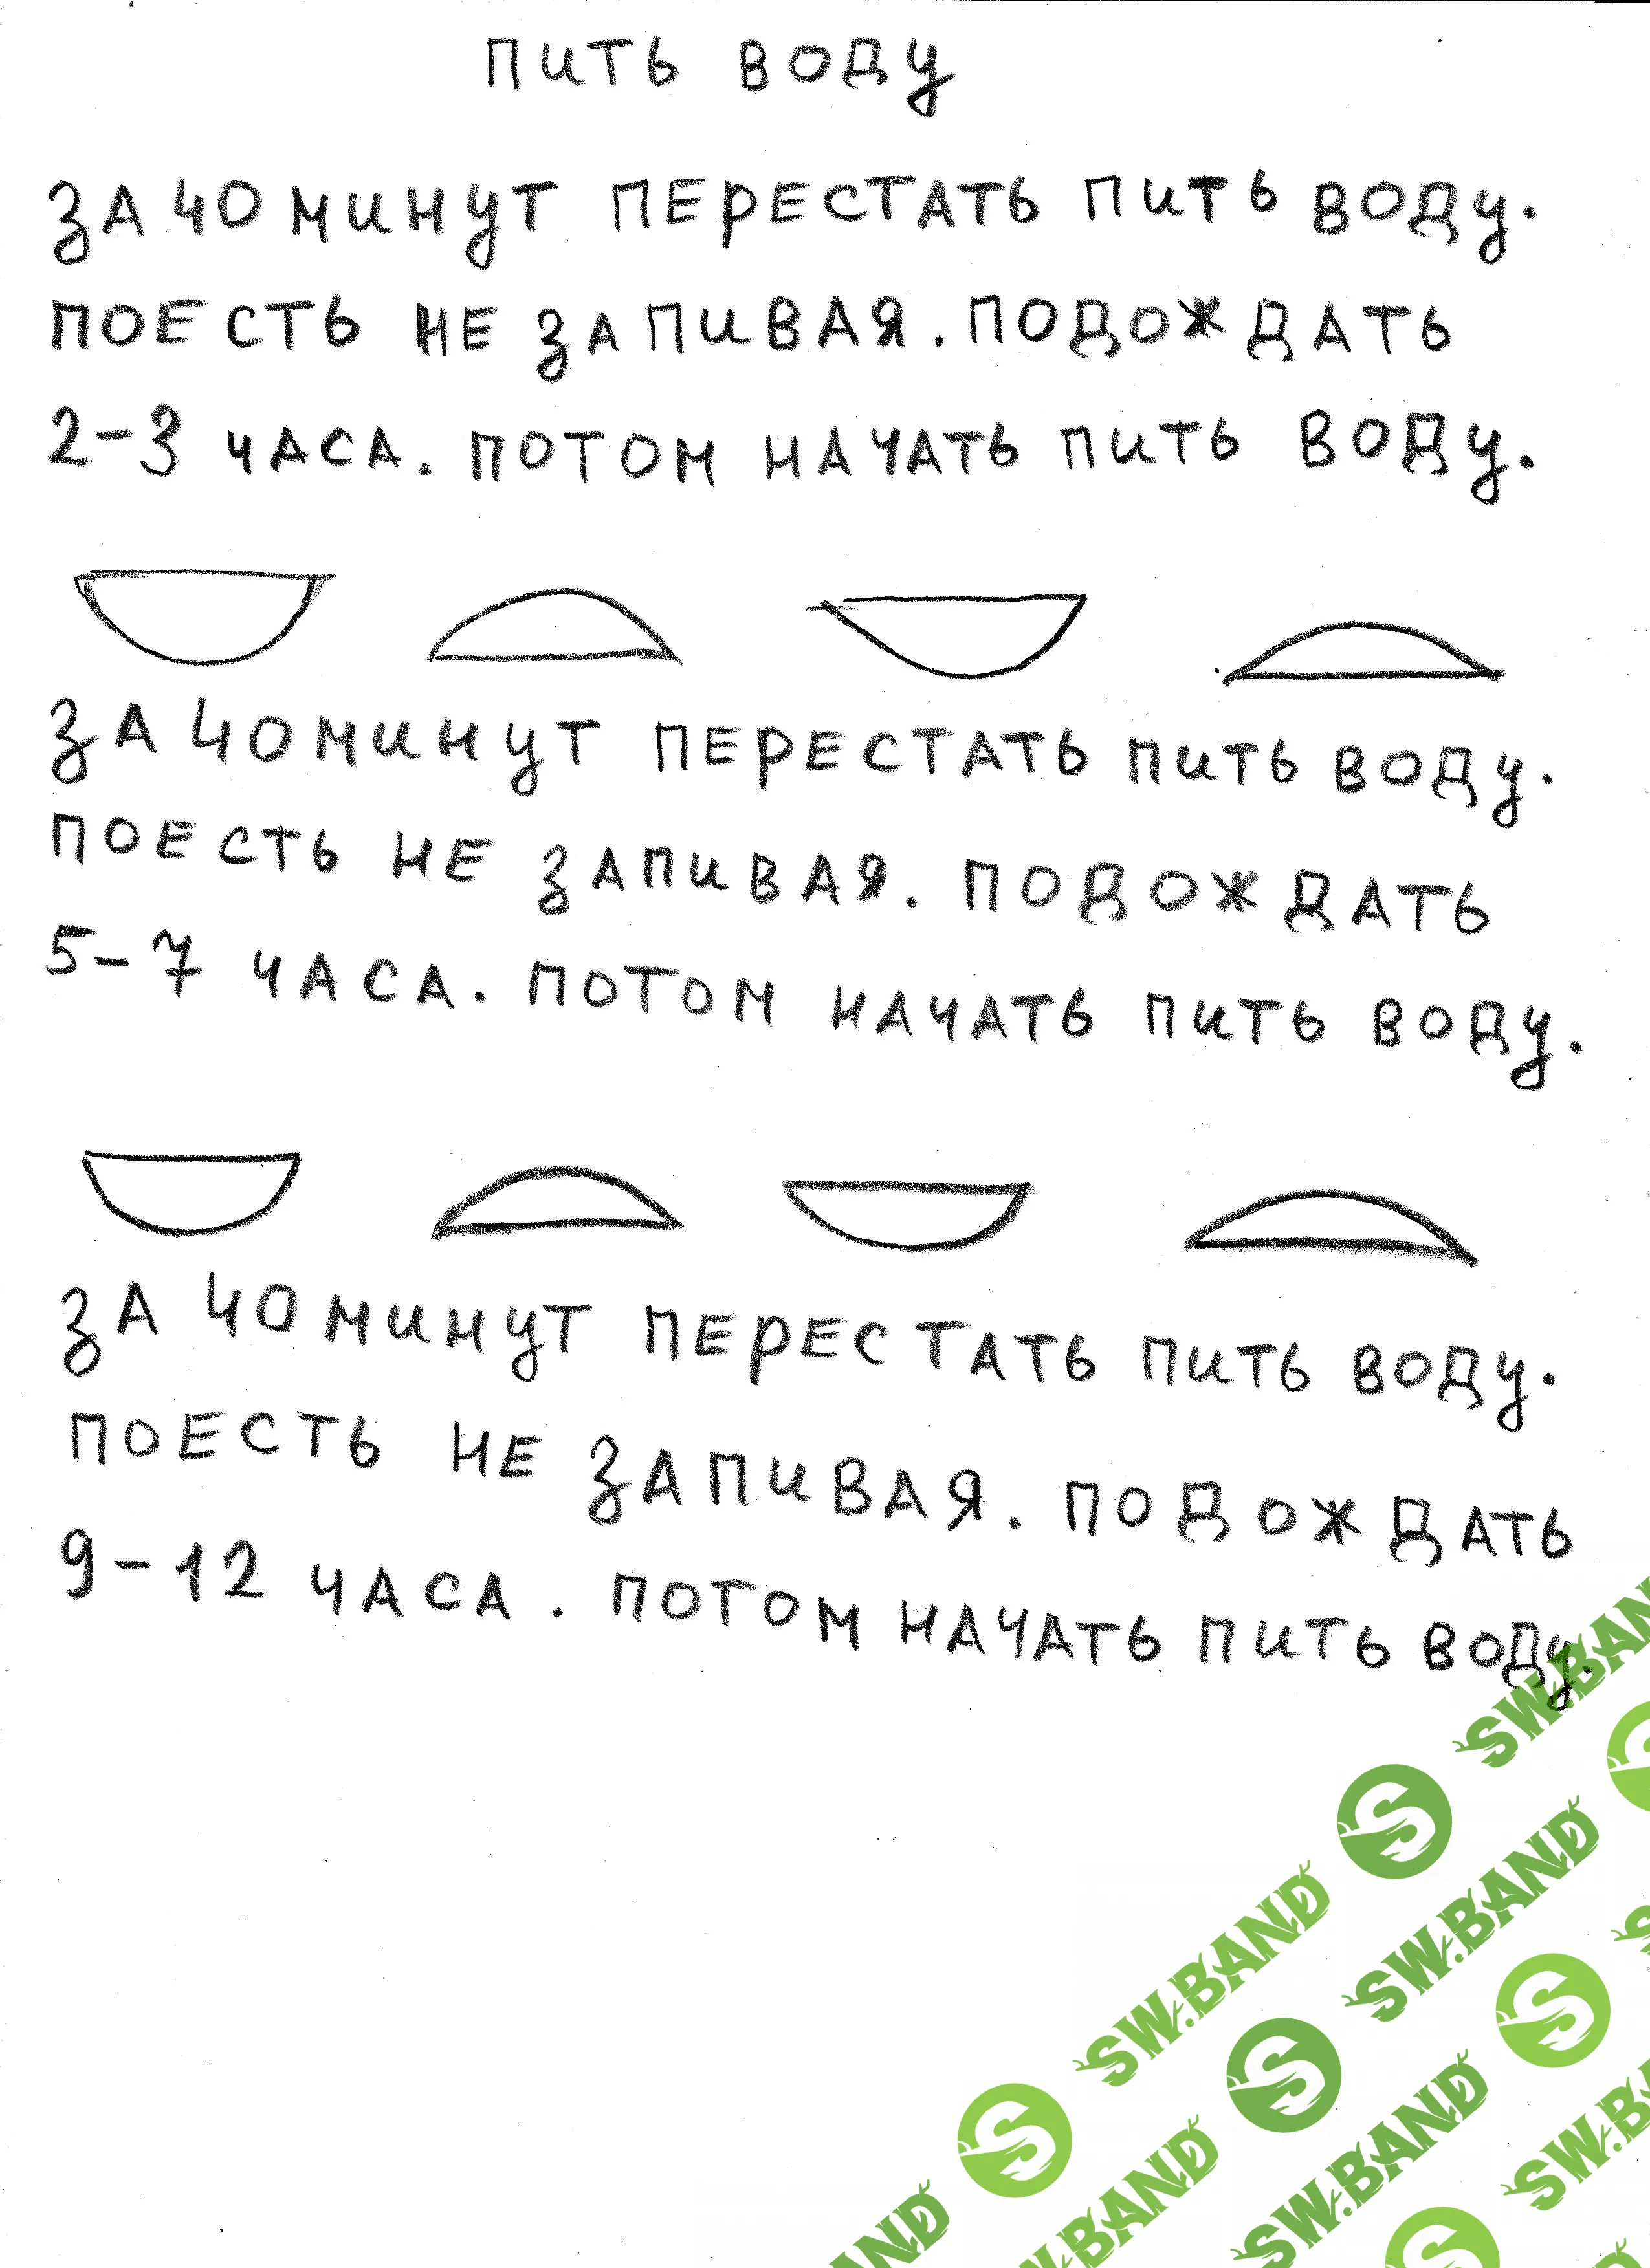 ПИТЬ ВОДУ
ЗА 40 МИНУТ ПЕРЕСТАТЬ ПИТЬ ВОДУ.
ПОЕСТЬ НЕ ЗАПИВАЯ. ПОДОЖДАТЬ
2-3 ЧАСА. ПОТОМ НАЧАТЬ ПИТЬ ВОДУ.
ЗА 40 МИНУТ ПЕРЕСТАТЬ ПИТЬ ВОДУ.
ПОЕСТЬ НЕ ЗАПИВАЯ. ПОДОЖДАТЬ
5-7 ЧАСА. ПОТОМ НАЧАТЬ ПИТЬ ВОДУ.
ЗА 40 МИНУТ ПЕРЕСТАТЬ ПИТЬ ВОДУ.
ПОЕСТЬ НЕ ЗАПИВАЯ. ПОДОЖДАТЬ
9-12 ЧАСА. ПОТОМ НАЧАТЬ ПИТЬ ВОДУ.
SW.BAND
SW.BAND
SW.BAND
SW.BAND
SW.BAND
SW.BAND